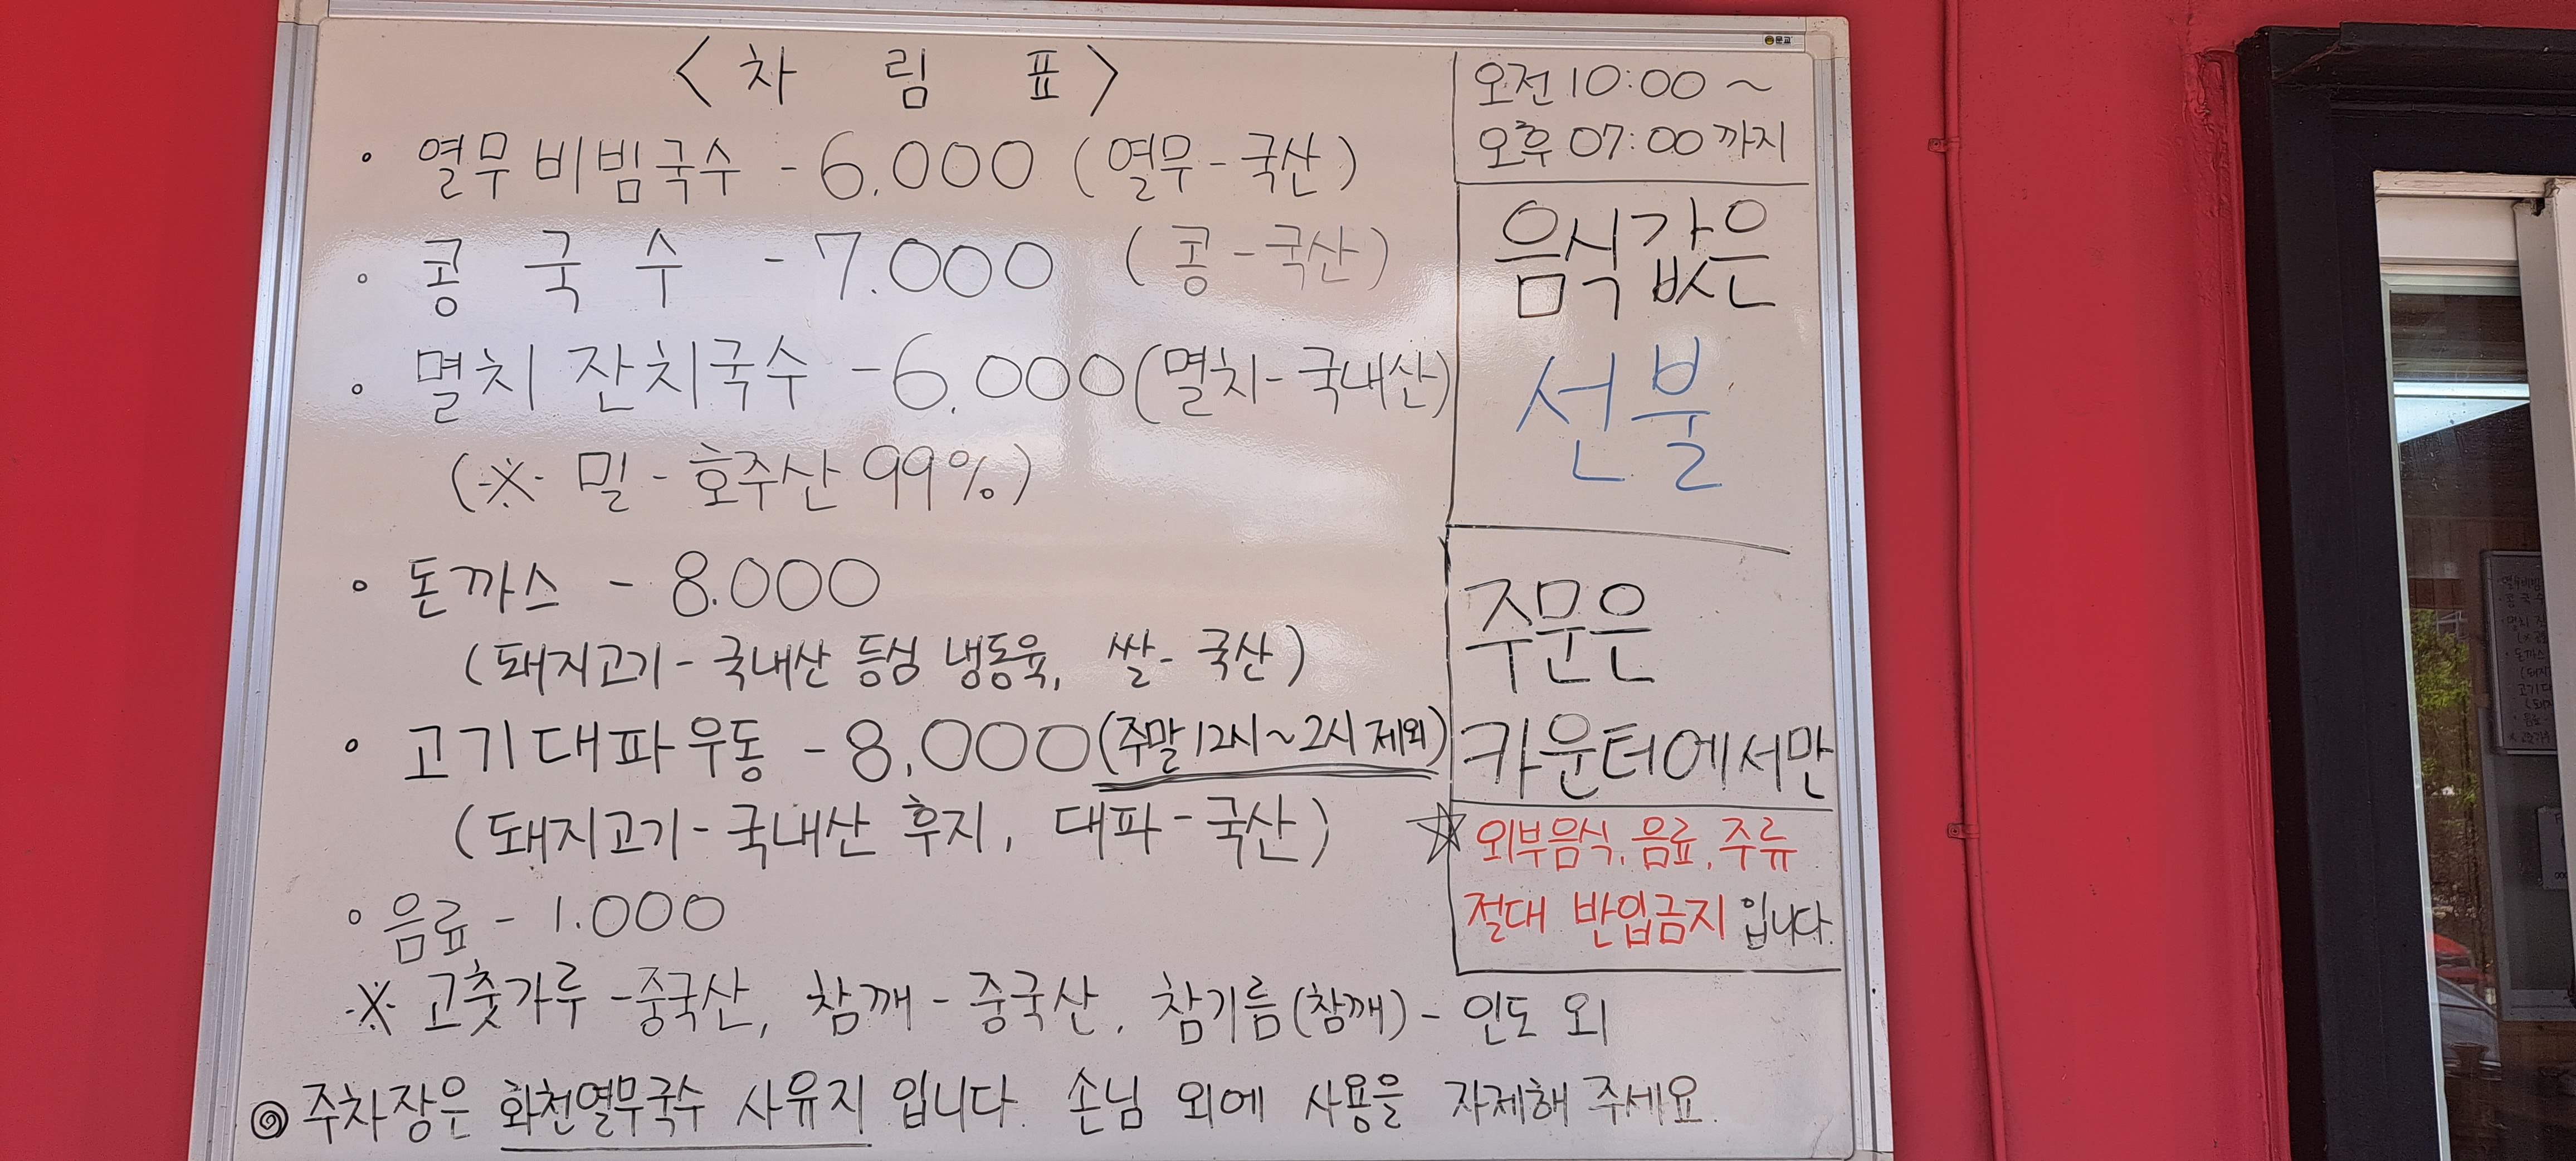 <차 림 표>
• 열무비빔국수 - 6.000 (열무-국산)
• 콩 국 수 - 7.000 (콩-국산)
• 멸치 잔치국수 - 6.000(멸치-국내산)
(※ 밀 - 호주산 99%)
• 돈까스 - 8.000
(돼지고기-국내산 등심 냉동육, 쌀-국산)
• 고기대파우동 - 8.000(주말12시~2시 제외)
(돼지고기-국내산 후지, 대파-국산)
• 음료 - 1.000
※ 고춧가루-중국산, 참깨-중국산, 참기름(참깨)-인도 외
◎ 주차장은 화천열무국수 사유지 입니다. 손님 외에 사용을 자제해 주세요.
문교
오전 10:00 ~
오후 07:00 까지
음식값은
선불
주문은
카운터에서만
☆ 외부음식, 음료, 주류
절대 반입금지 입니다.